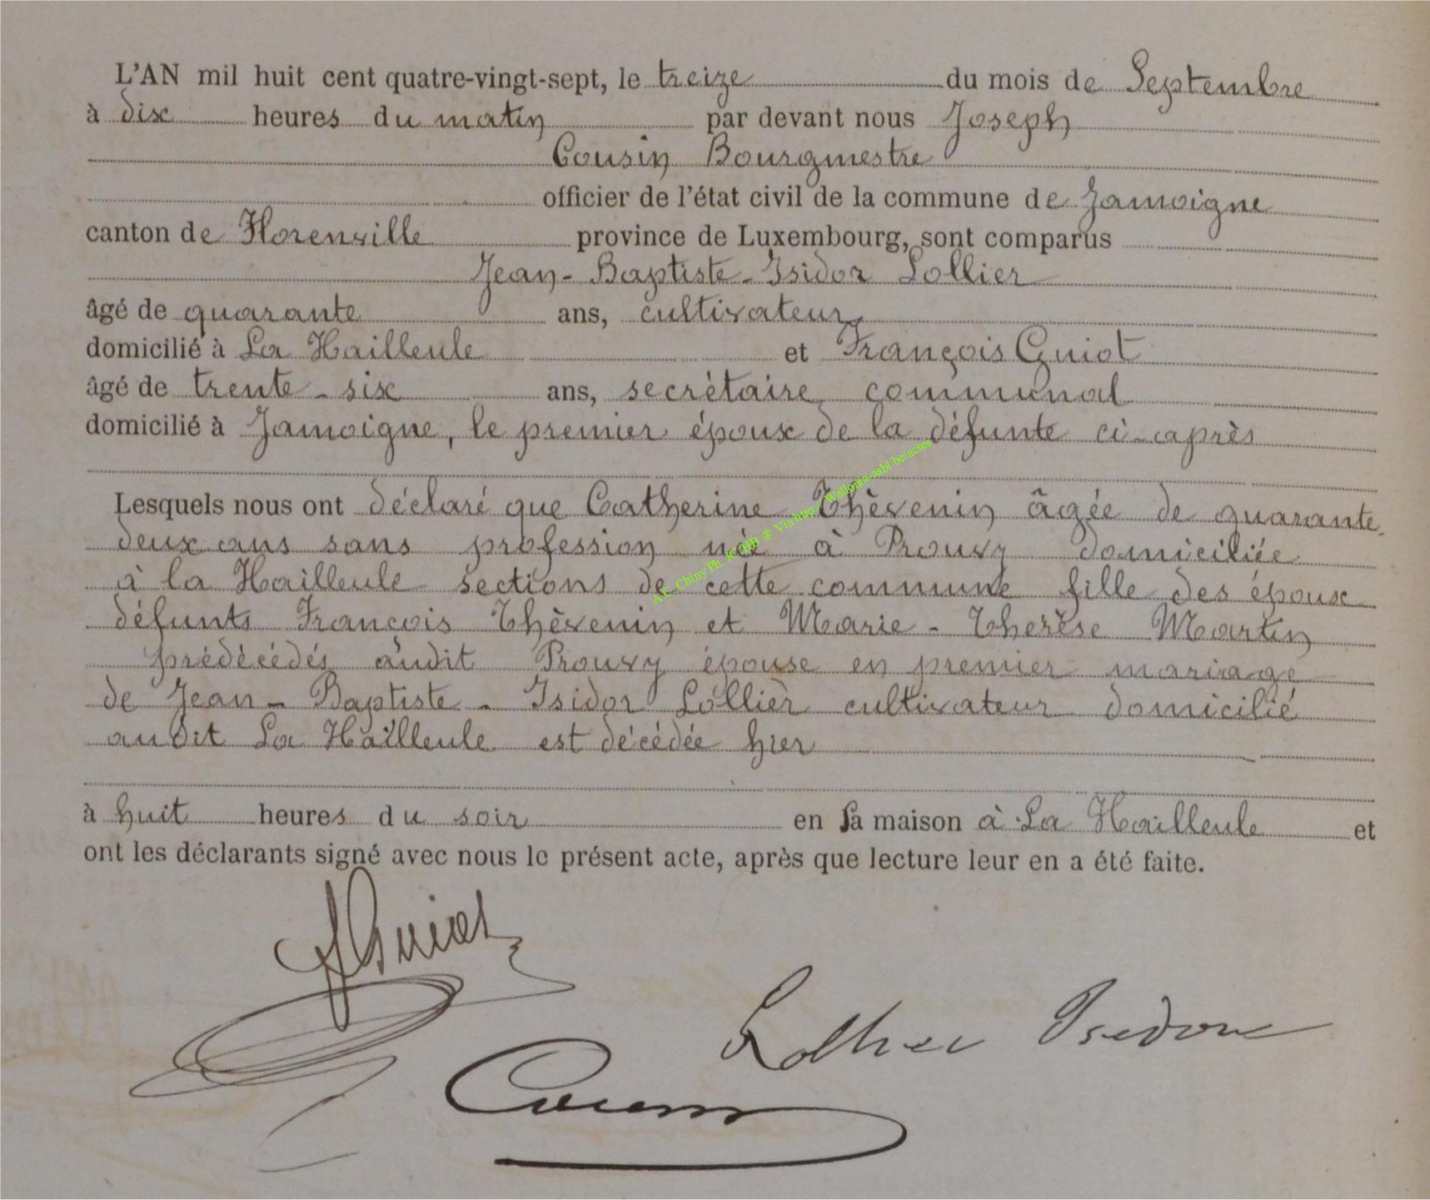 L'AN mil huit cent quatre-vingt-sept, le treize du mois de Septembre
à dix heures du matin par devant nous Joseph
Cousin Bourgmestre
officier de l'état civil de la commune de Jamoigne
canton de Florenville province de Luxembourg, sont comparus
Jean-Baptiste-Isidor Lollier
âgé de quarante ans, cultivateur
domicilié à La Hailleule et François Guiot
âgé de trente-six ans, secrétaire communal
domicilié à Jamoigne, le premier époux de la défunte ci-après
Lesquels nous ont déclaré que Catherine Thèvenin âgée de quarante
deux ans sans profession née à Prouvy domiciliée
à la Hailleule sections de cette commune fille des époux
défunts François Thèvenin et Marie-Therèse Martin
prédécédés audit Prouvy épouse en premier mariage
de Jean-Baptiste-Isidor Lollier cultivateur domicilié
audit La Hailleule est décédée hier
à huit heures du soir en sa maison à La Hailleule et
ont les déclarants signé avec nous le présent acte, après que lecture leur en a été faite.
Guiot
Lollier Isidore
Cousin